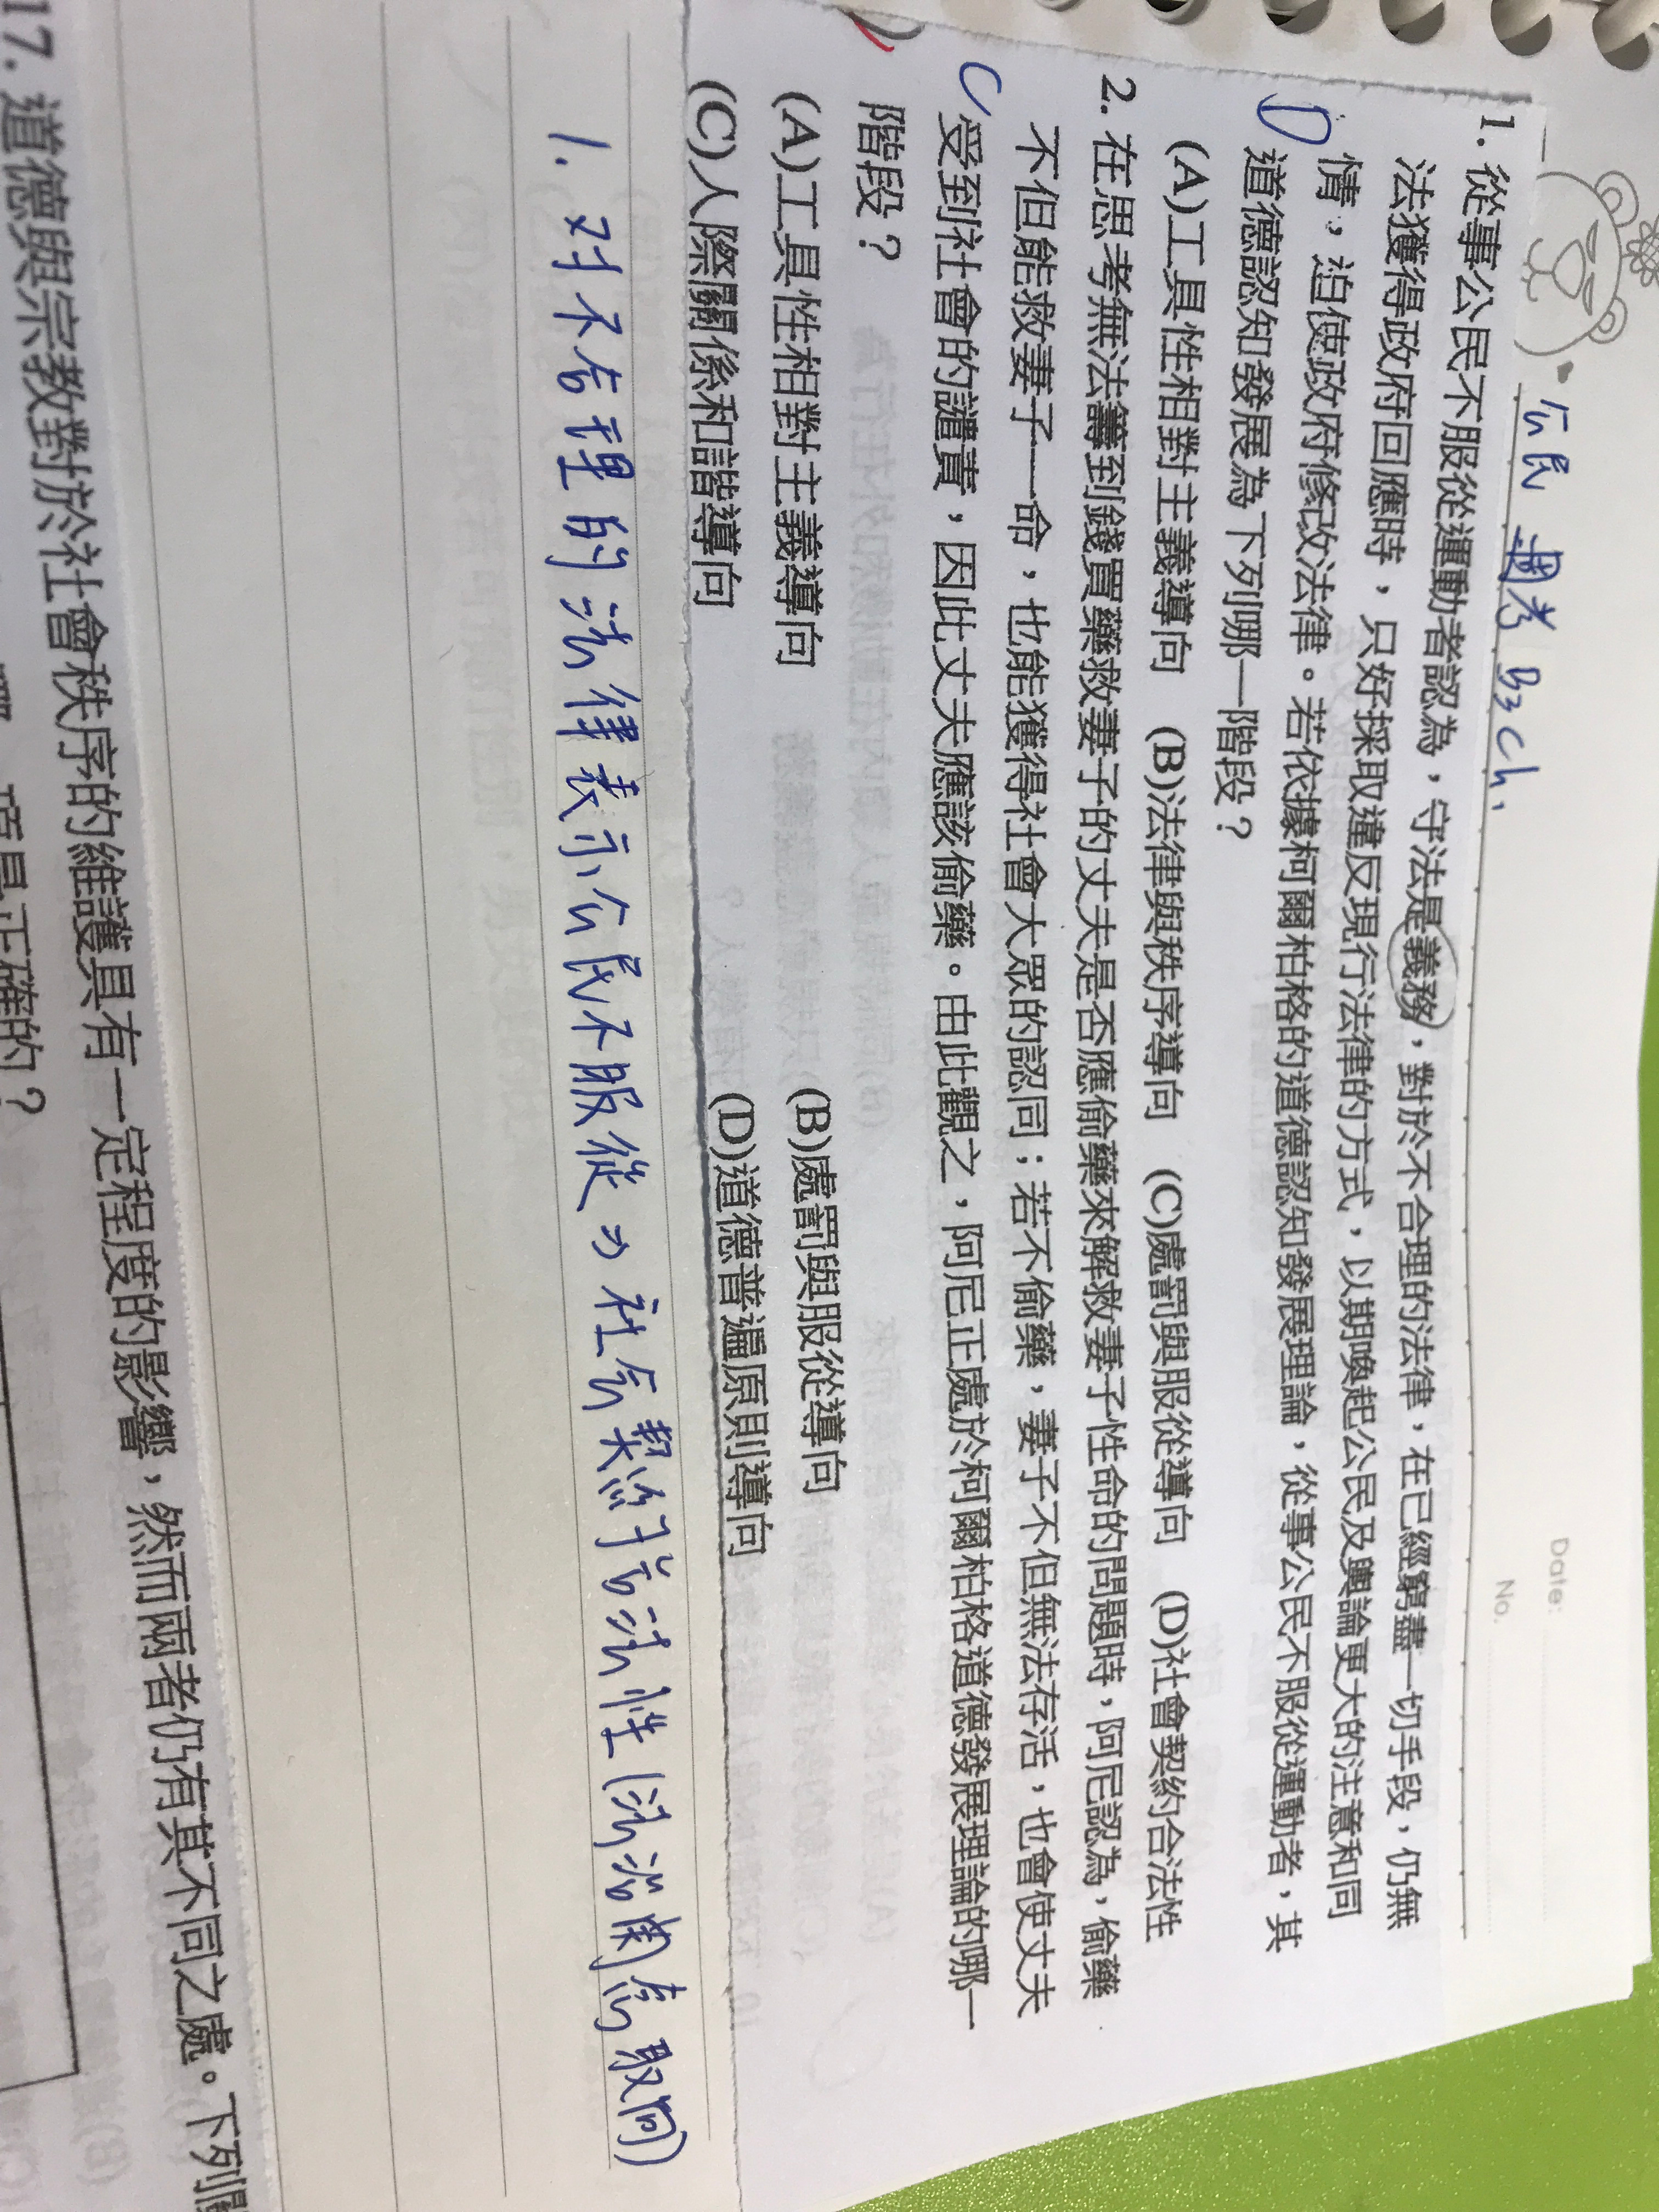 Date:
No.
公民 週考 B3 Ch1
1. 從事公民不服從運動者認為，守法是義務，對於不合理的法律，在已經窮盡一切手段，仍無
法獲得政府回應時，只好採取違反現行法律的方式，以期喚起公民及輿論更大的注意和同
情，迫使政府修改法律。若依據柯爾柏格的道德認知發展理論，從事公民不服從運動者，其
D
道德認知發展為下列哪一階段？
(A)工具性相對主義導向 (B)法律與秩序導向 (C)處罰與服從導向 (D)社會契約合法性
2. 在思考無法籌到錢買藥救妻子的丈夫是否應偷藥來解救妻子性命的問題時，阿尼認為，偷藥
不但能救妻子一命，也能獲得社會大眾的認同；若不偷藥，妻子不但無法存活，也會使丈夫
C 受到社會的譴責，因此丈夫應該偷藥。由此觀之，阿尼正處於柯爾柏格道德發展理論的哪一
階段？
(A)工具性相對主義導向 (B)處罰與服從導向
(C)人際關係和諧導向 (D)道德普遍原則導向
1. 对不合理的法律表示公民不服從⇒社会契約合法性(法治觀念取向)
17. 道德與宗教對於社會秩序的維護具有一定程度的影響，然而兩者仍有其不同之處。下列關
正確的？